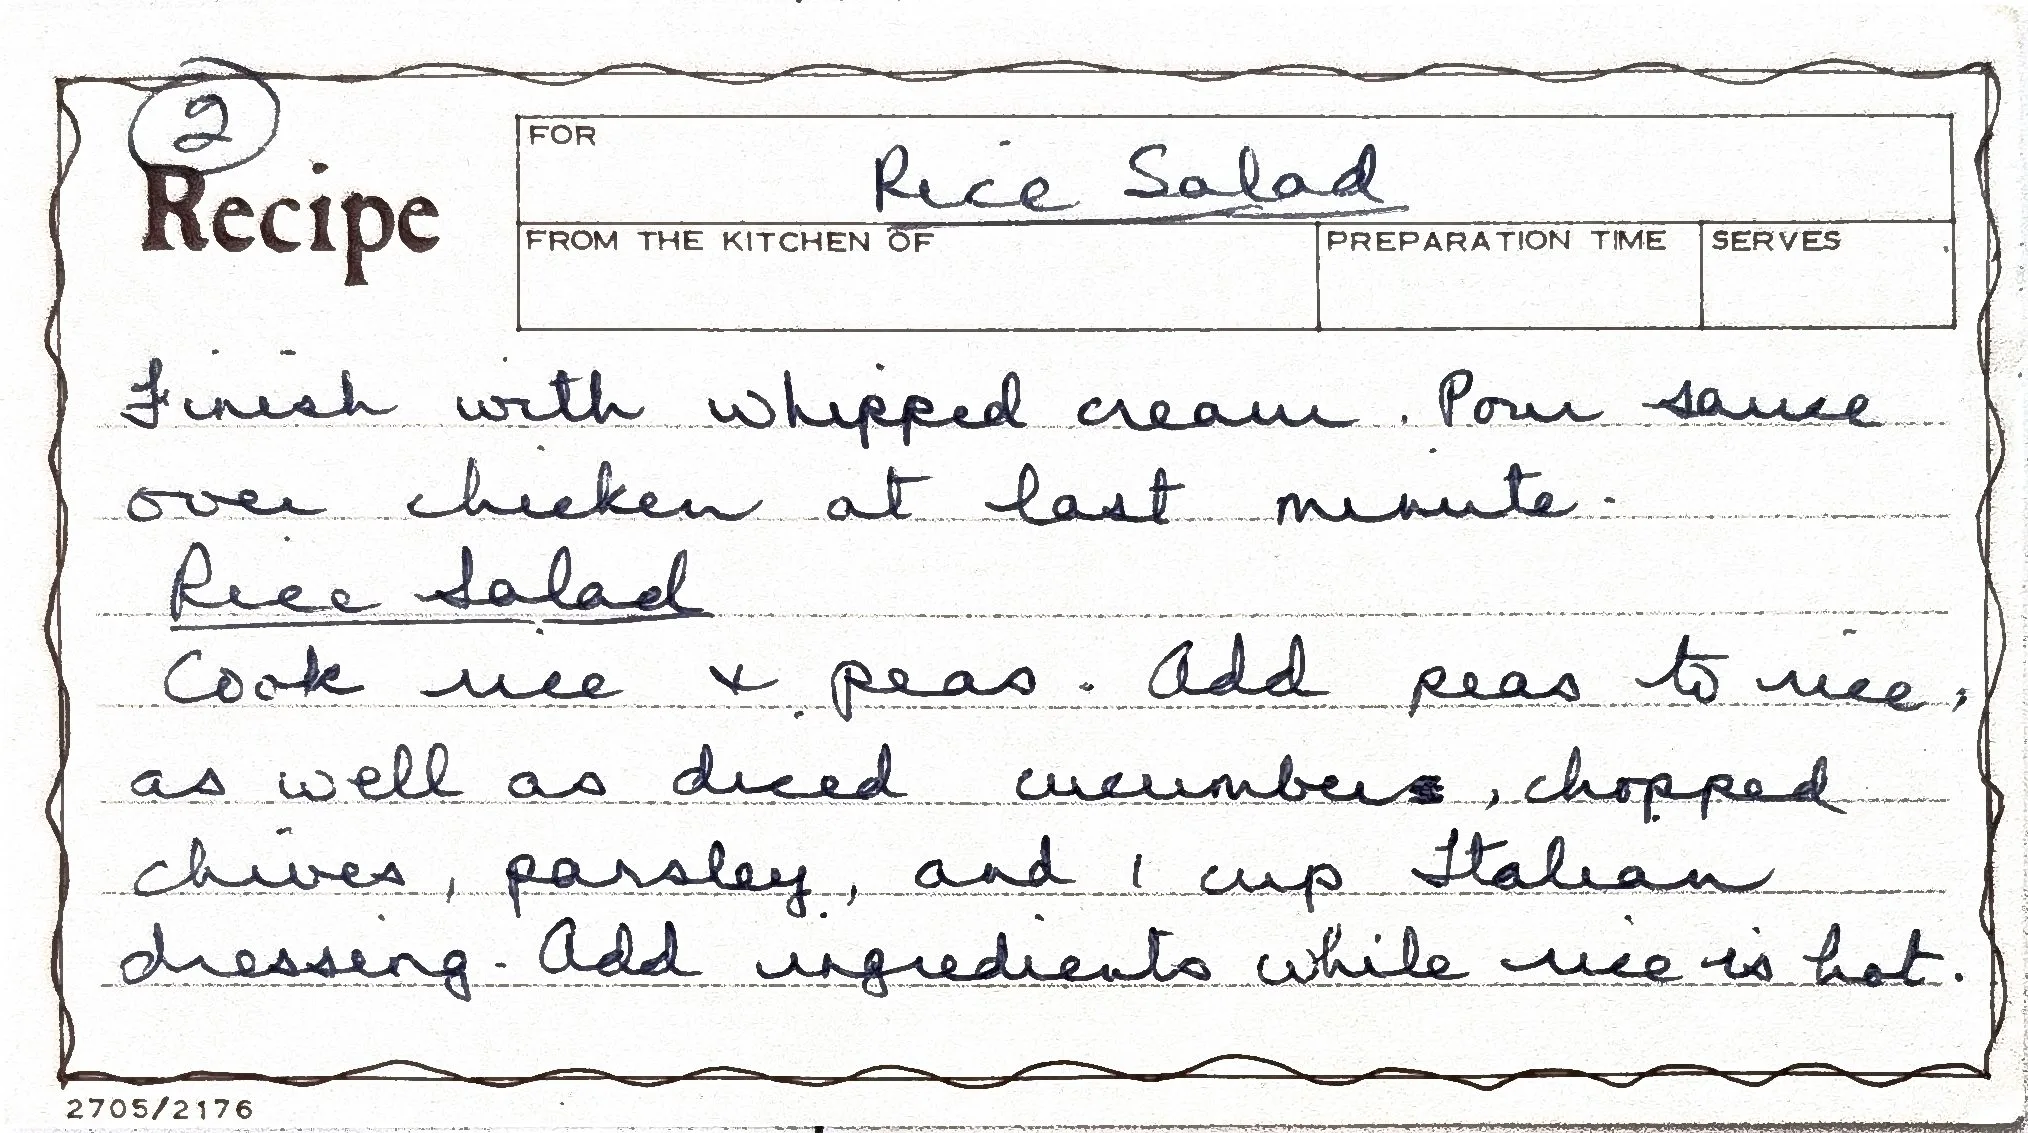 2
Recipe
FOR
Rice Salad
FROM THE KITCHEN OF
PREPARATION TIME
SERVES
Finish with whipped cream. Pour sauce
over chicken at last minute.
Rice Salad
Cook rice & peas. Add peas to rice,
as well as diced cucumbers, chopped
chives, parsley, and 1 cup Italian
dressing. Add ingredients while rice is hot.
2705/2176